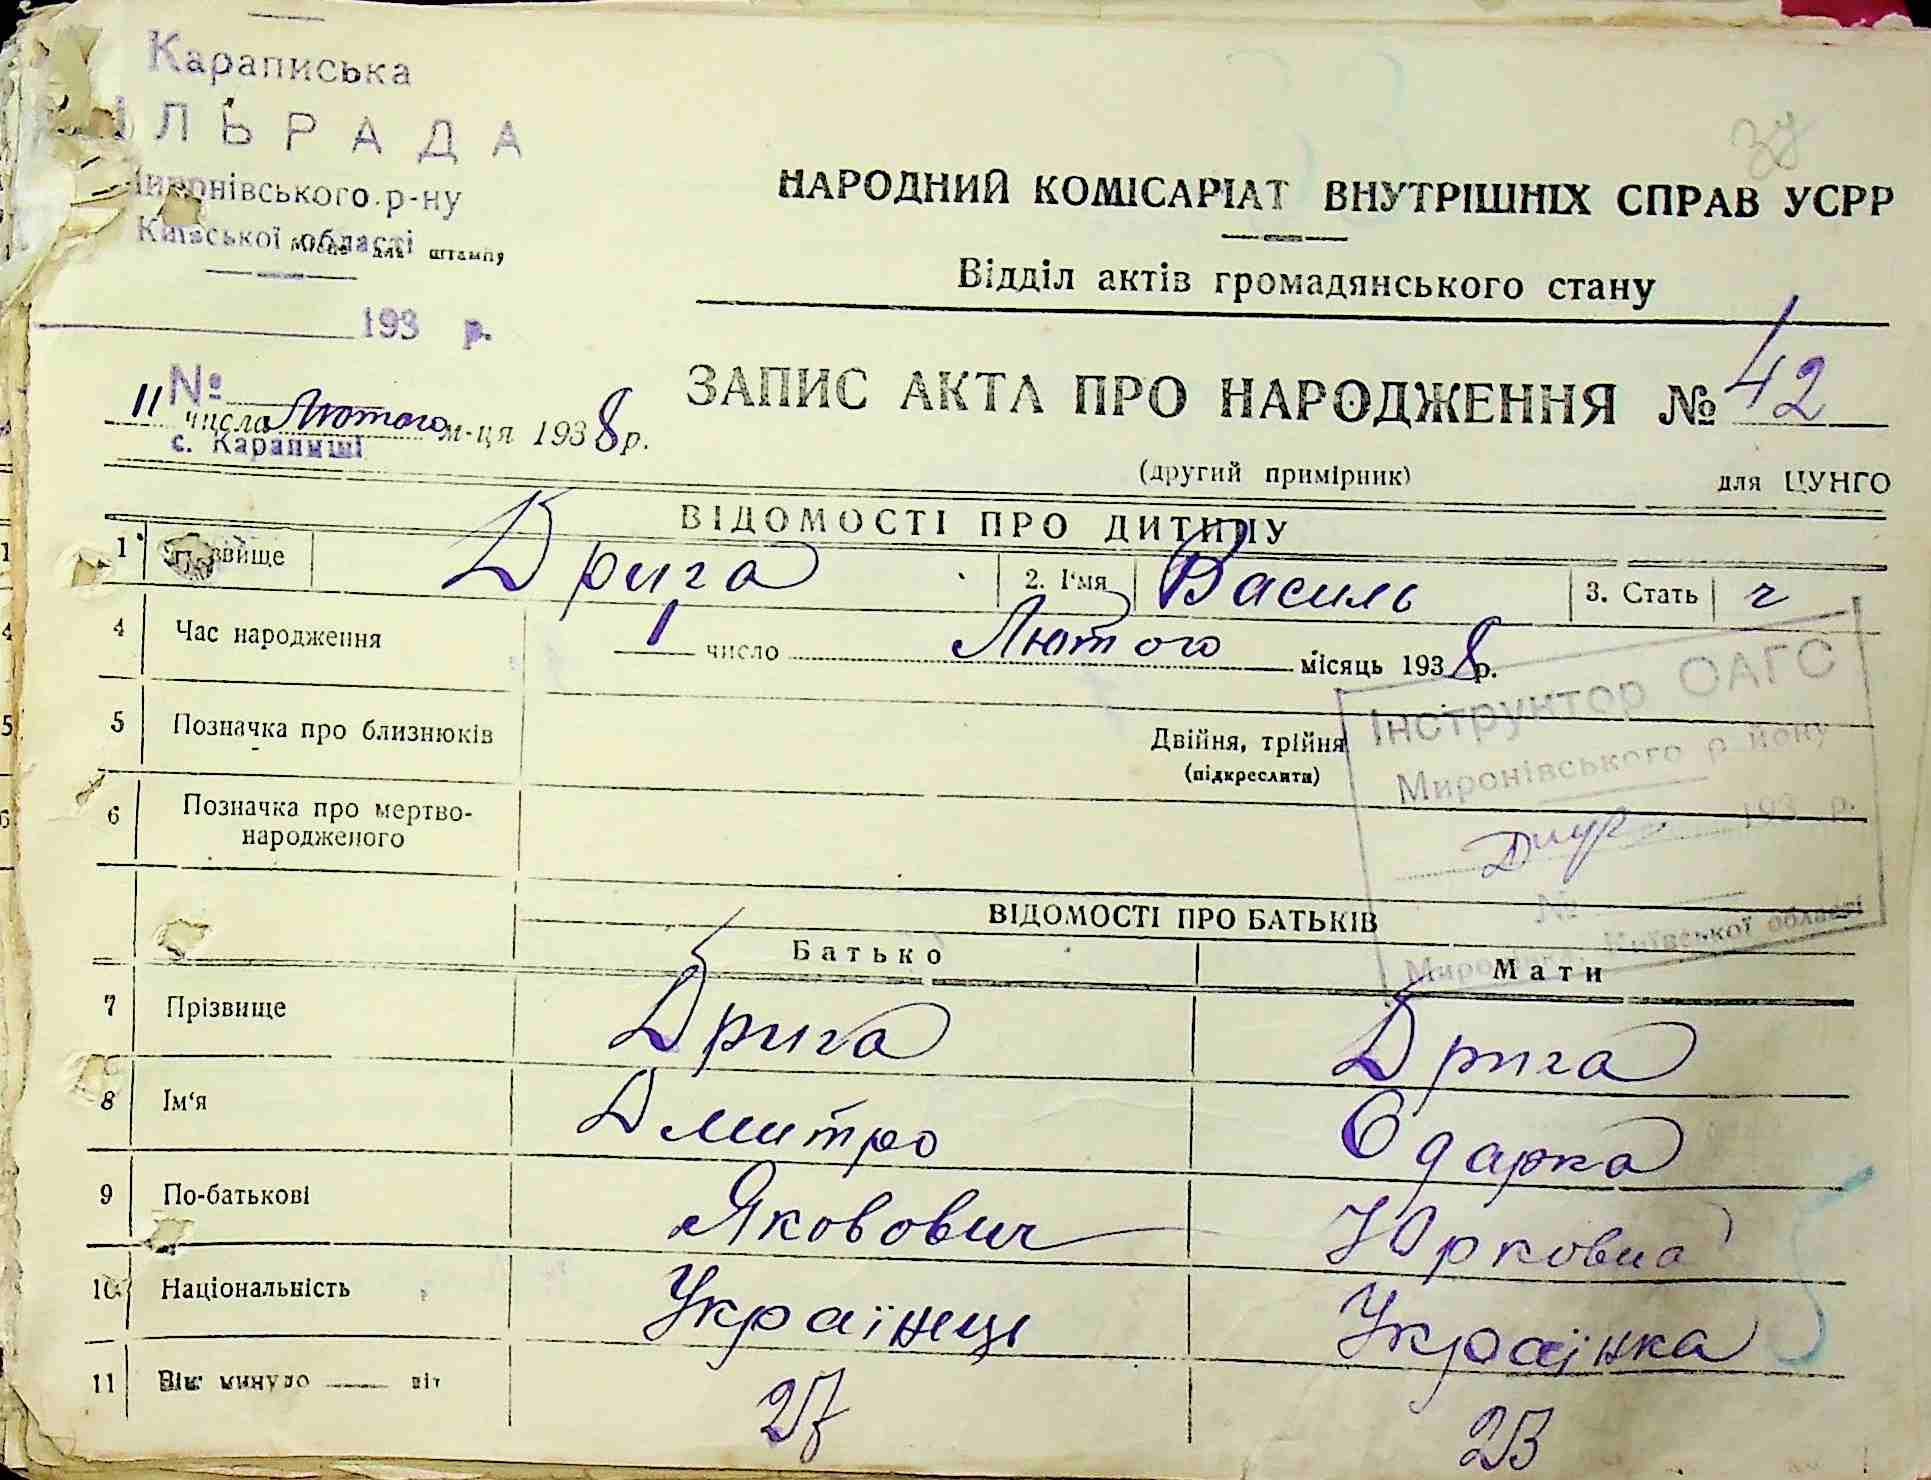 Караписька
ІЛЬРАДА
Миронівського р-ну
Київської області
Місце для штампу
193 р.
№
11 числа Лютого м-ця 1938 р.
с. Карапиші
37
НАРОДНИЙ КОМІСАРІАТ ВНУТРІШНІХ СПРАВ УСРР
Відділ актів громадянського стану
ЗАПИС АКТА ПРО НАРОДЖЕННЯ № 42
(другий примірник) для ЦУНГО
ВІДОМОСТІ ПРО ДИТИНУ
1 Прізвище Дрига 2. І'мя Василь 3. Стать ч
4 Час народження 1 число Лютого місяць 1938 р.
5 Позначка про близнюків Двійня, трійня
(підкреслити)
6 Позначка про мертво-
народженого
Інструктор ОАГС
Миронівського району
193 р.
№
Київської області
ВІДОМОСТІ ПРО БАТЬКІВ
Батько Мати
7 Прізвище Дрига Дрига
8 Ім'я Дмитро Одарка
9 По-батькові Якович Юрковна
10 Національність Українець Українка
11 Вік минуло літ 27 23